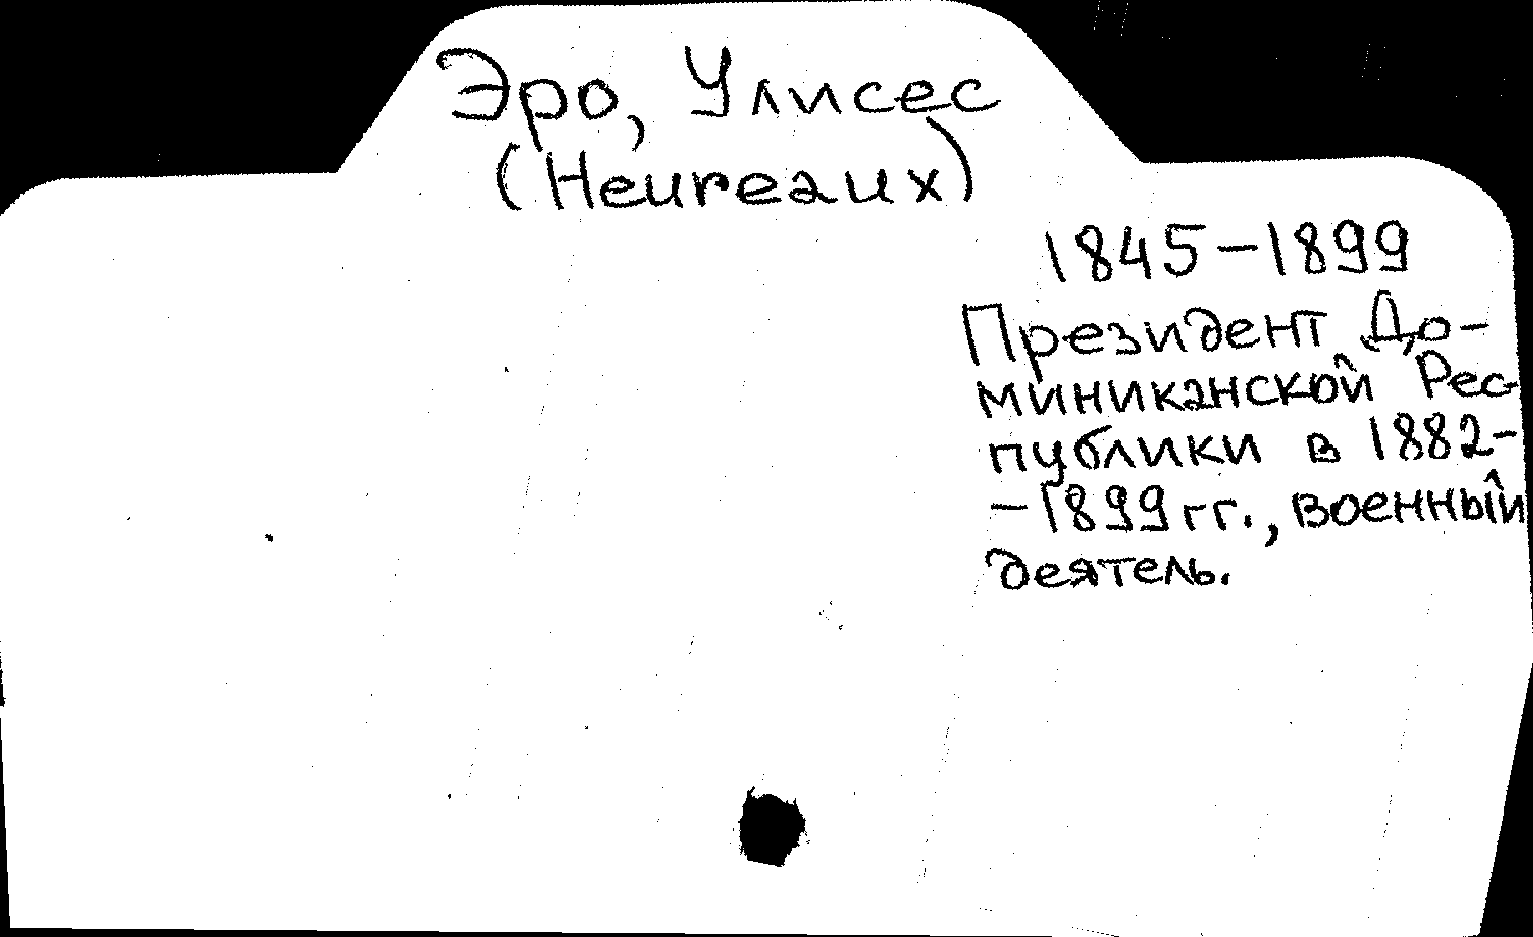 Эро, Улисес
(Heureaux)
1845-1899
Президент До-
миниканской Рес-
публики в 1882-
-1899 гг., военный
деятель.